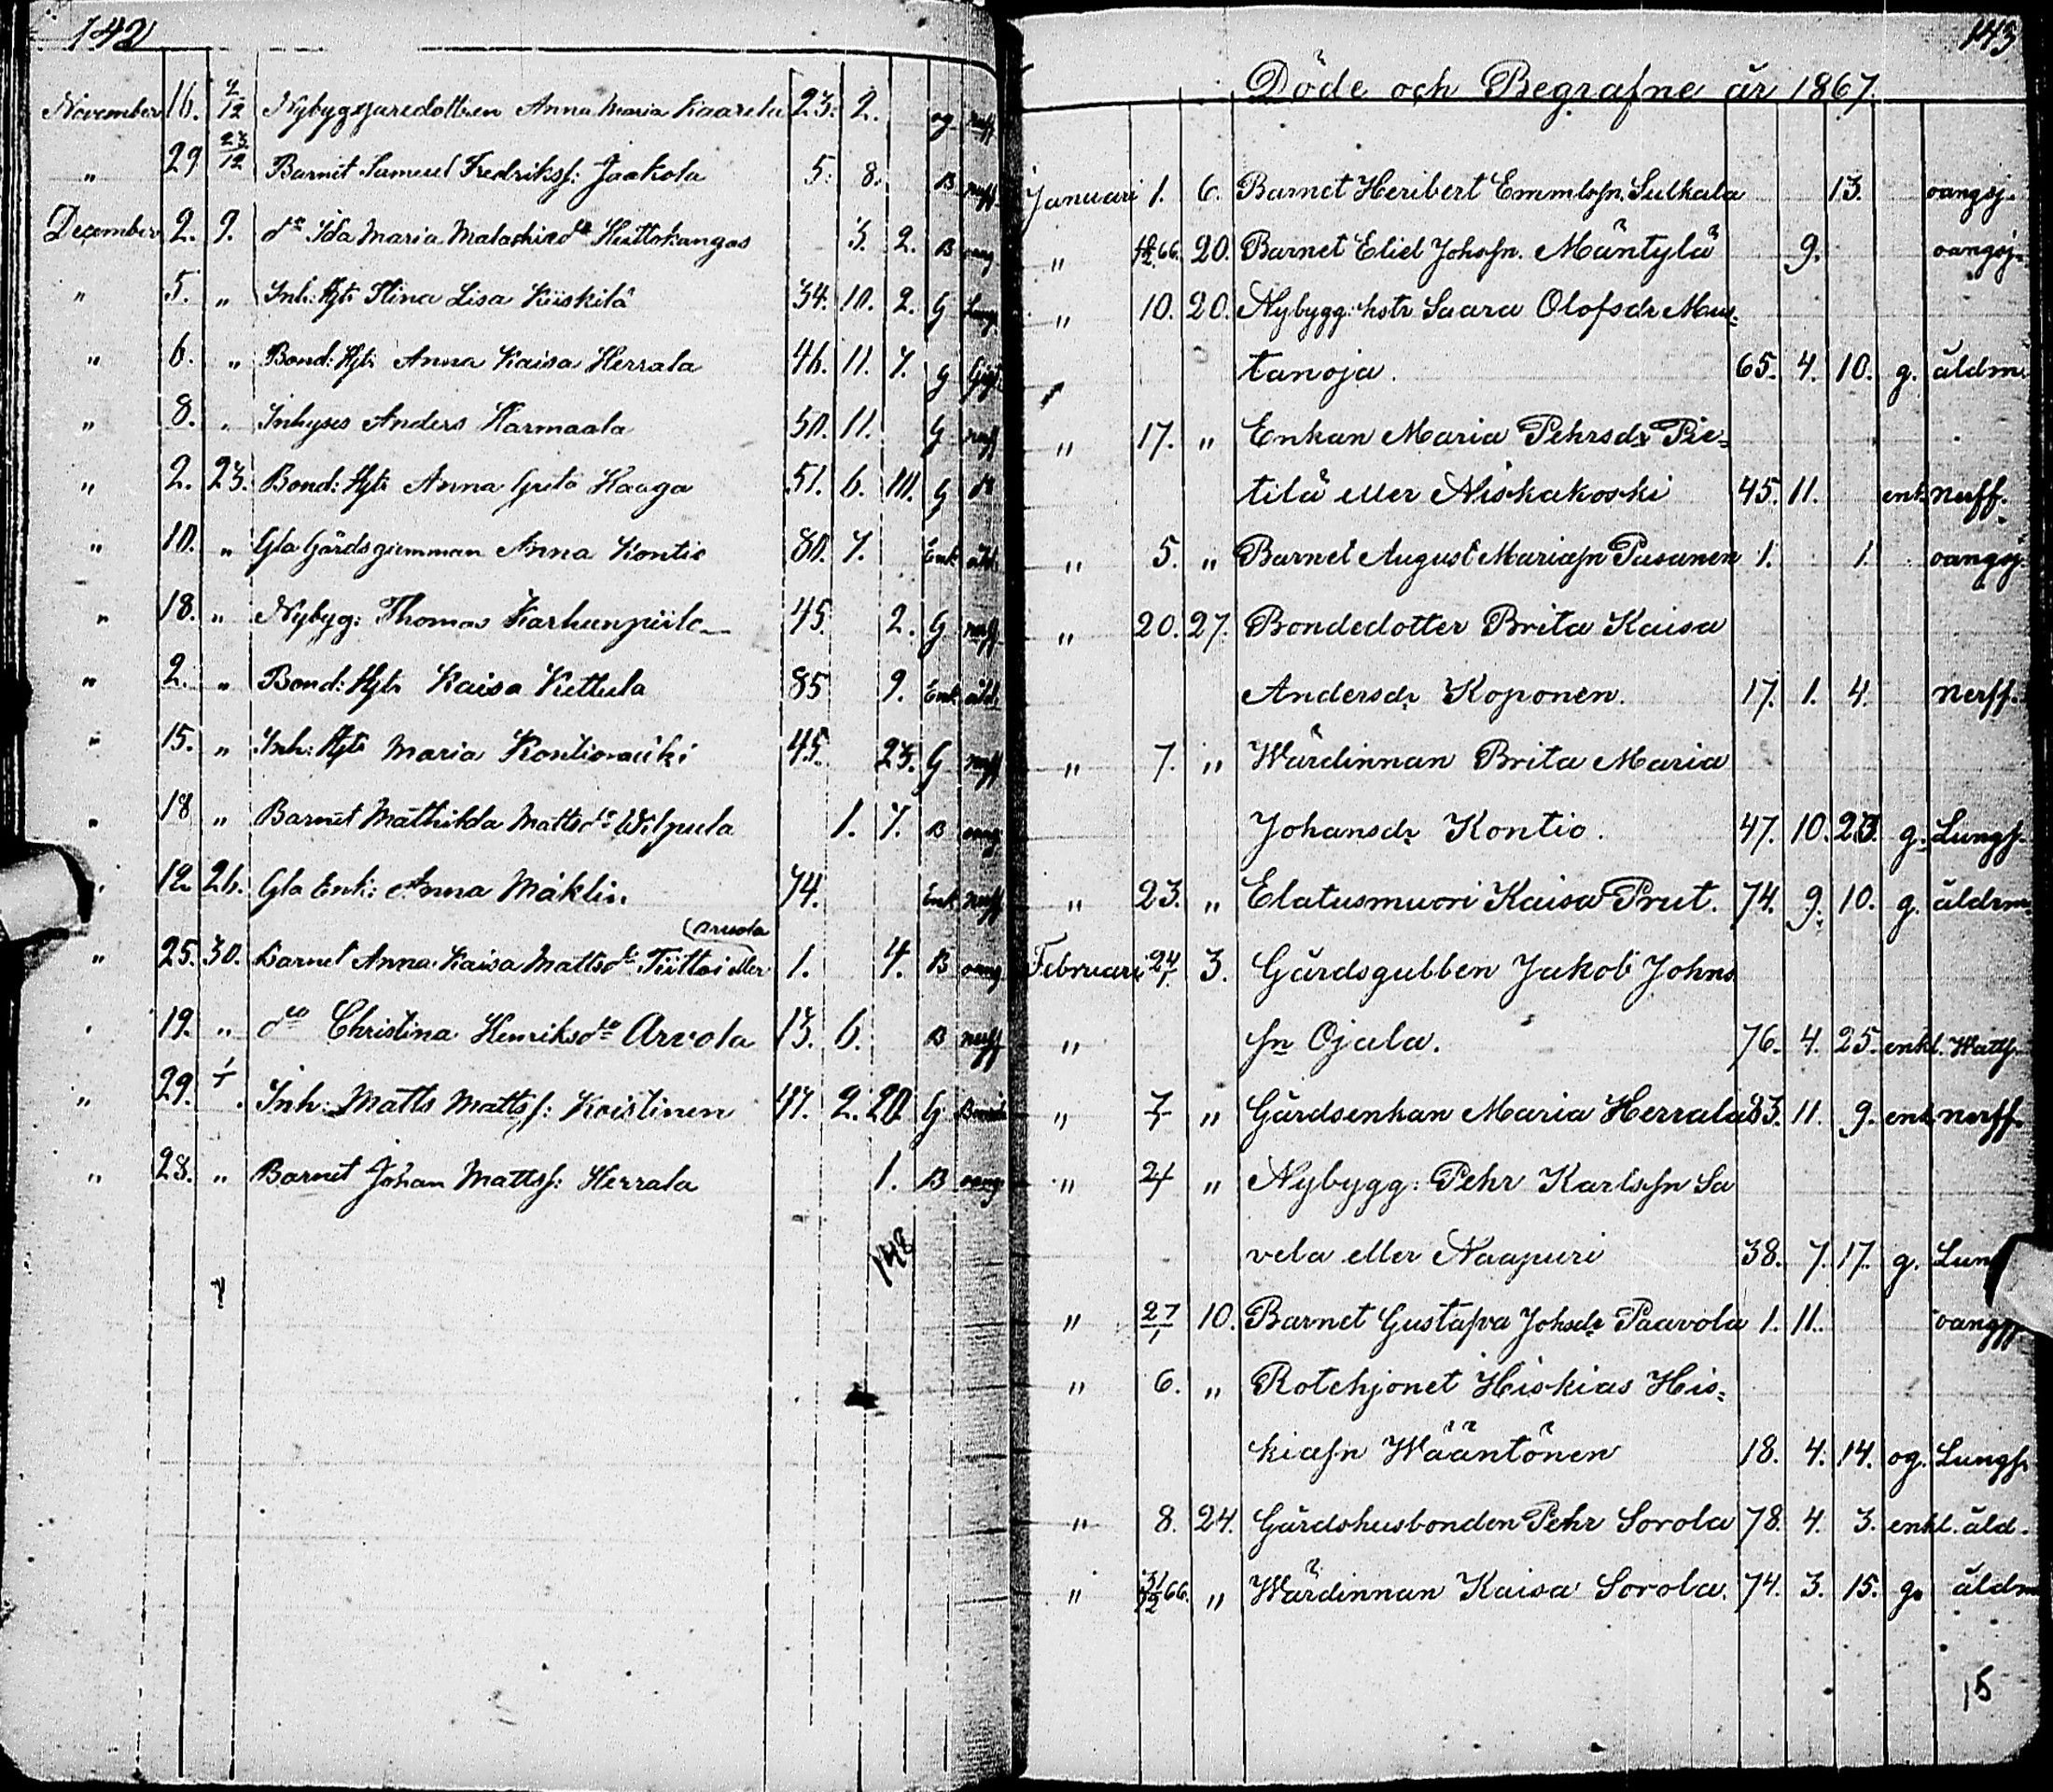 142
November 16. 2/12 Nybyggaredottren Anna Maria Kaarela 23. 2. og nerff
" 29 23/12 Barnet Samuel Fredrikss: Jaakola 5. 8. B nerff
December 2. 9. do Ida Maria Malachiedr Huttokangas 3. 2. B oang
" 5. " Inh: Hstr Stina Lisa Kiiskilä 34. 10. 2. G Lung
" 6. " Bond: Hstr Anna Kaisa Herrala 46. 11. 7. G
" 8. Inhyses Anders Karmaala 50. 11. G nerff
" 2. 23. Bond: Hstr Anna Greta Haaga 51. 6. 10. G do
" 10. " Gla Gårdsgumman Anna Kontio 80. 7. Enk åld.
" 18. " Nybyg: Thomas Karhunpiilo 45. 2. G nerff
" 2. " Bond: Hstr Kaisa Kettula 85 9. Enk åld.
" 15. " Inh: Hstr Maria Kontioraiki 45. 23. G nerff
" 18 " Barnet Mathilda Mattsdr Wilpula 1. 7. B oang
12 26. Gla Enk: Anna Mäklin 74. Enk nerff
(arvola
" 25. 30. Barnet Anna Kaisa Mattsdr Tiittoi eller 1. 4. B oang
19. " do Christina Henriksdr Arvola 13. 6. B nerff
" 29. 1/1. Inh: Matts Mattss: Koistinen 47. 2. 20 G
" 28. " Barnet Johan Mattss: Herrala 1. B oang
148
143
Döde och Begrafne år 1867
Januari 1. 6. Barnet Heribert Emmlsn. Sulkala 13. oangsj.
" 66. 20. Barnet Eliel Johssn. Mäntylä 9. oangsj.
" 10. 20. Nybygg: hstr Saara Olofsdr Mus-
tanoja. 65. 4. 10. g. åldrm.
" 17. " Enkan Maria Pehrsdr Pie-
tilä eller Niskakoski 45. 11. enk. nerff.
" 5. " Barnet August Mariasn Pasanen 1. 1. oangsj.
" 20. 27. Bondedotter Brita Kaisa
Andersdr Koponen. 17. 1. 4. nerff.
" 7. " Wärdinnan Brita Maria
Johansdr Kontio. 47. 10. 23. g. Lungf.
" 23. " Elatusmuori Kaisa Prut. 74. 9. 10. g. åldrm.
Februari 24/1. 3. Gårdsgubben Jakob Johns
sn Ojala. 76. 4. 25. enkl. Watts.
"
" 7 " Gårdsenkan Maria Herrala 83. 11. 9. enk nerff.
" 24 " Nybygg: Pehr Karlssn Sa
vela eller Naapuri 38. 7. 17. g. Lun
" 27/1 10. Barnet Gustafva Johsdr Paavola 1. 11. oangsj.
" 6. " Rotehjonet Hiskias His-
kiasn Wääntönen 18. 4. 14. og. Lungf.
" 8. 24. Gårdshusbonden Pehr Sorola 78. 4. 3. enkl. åld.
" 31/12 66. " Wärdinnan Kaisa Sorola. 74. 3. 15. g. åldrm
15